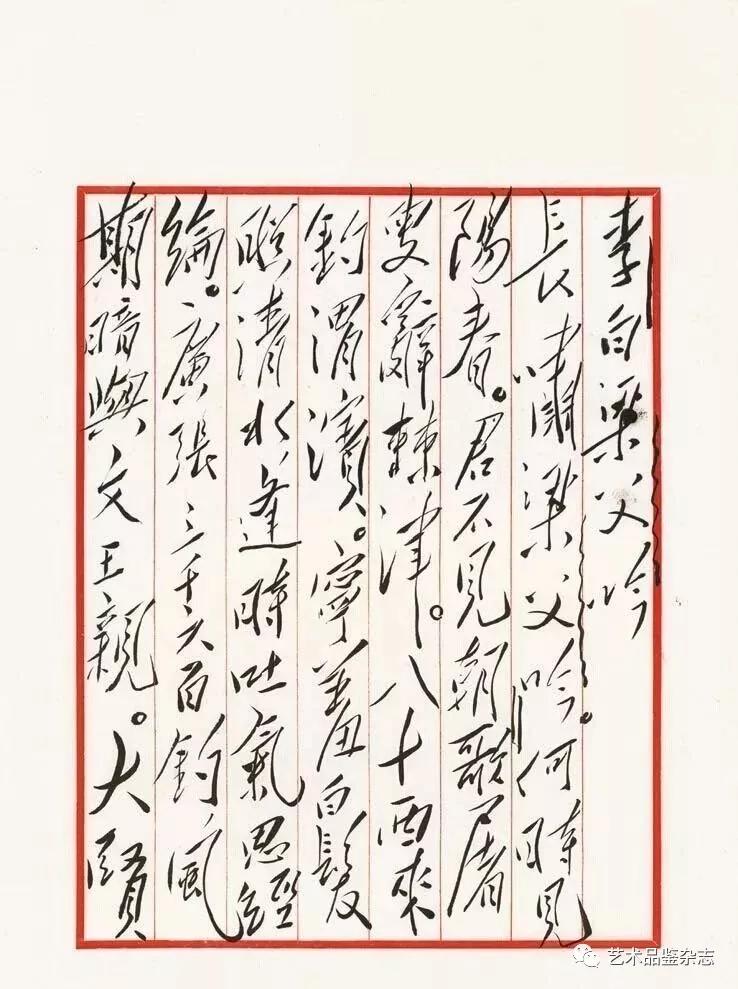 李白梁父吟
長嘯梁父吟。何時見
陽春。君不見朝歌屠
叟辭棘津。八十西來
釣渭濱。寧羞白髮
照清水逢時吐氣思經
綸。廣張三千六百釣風
期暗與文王親。大賢
艺术品鉴杂志